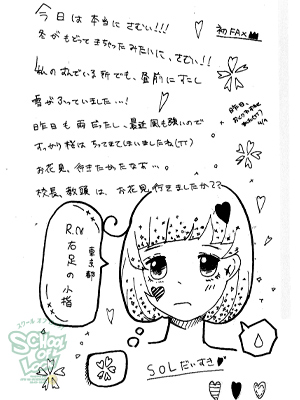 今日は本当にさむい!!!
初FAX
冬がもどってきちゃったみたいに、さむい!!
私のすんでいる所でも、昼前にすこし
雪がふっていました…!
昨日も雨だったし、最近風も強いので
すっかり桜はちってきてしまいましたね(TT)
お花見、行きたかったなぁ…。
校長、教頭は、お花見行きましたか??
昨日、
東京都
R.N
右足の小指
SCHOOL OF LOCK!
SOLだいすき